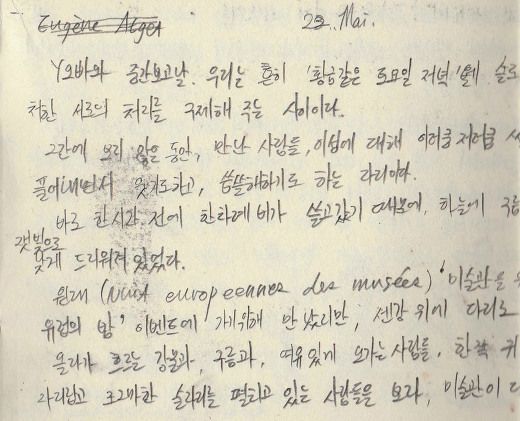 Eugène Atget 29. Mai.
Y오빠와 중간보고날. 우리는 흔히 '황금같은 토요일 저녁'에
처한 서로의 처지를 구제해 주는 사이이다.
그간에 보지 않은 동안, 만난 사람들, 이섭에 대해 이러쿵 저러쿵
풀어내면서 웃기도하고, 씁쓸해하기도 하는 자리이다.
바로 한시간 전에 한차례 비가 쓸고갔기 때문에, 하늘에
잿빛으로
낮게 드리워져 있었다.
원래 (Nuit européennes des musées) '미술관
유럽의 밤' 이벤트에 가기위해 만났지만, 센강 위에 다리로
올라가 흐르는 강물과, 구름과, 여유있게 오가는 사람들, 한쪽
자리잡고 조그마한 술자리를 펼치고 있는 사람들을 보자, 미술관이